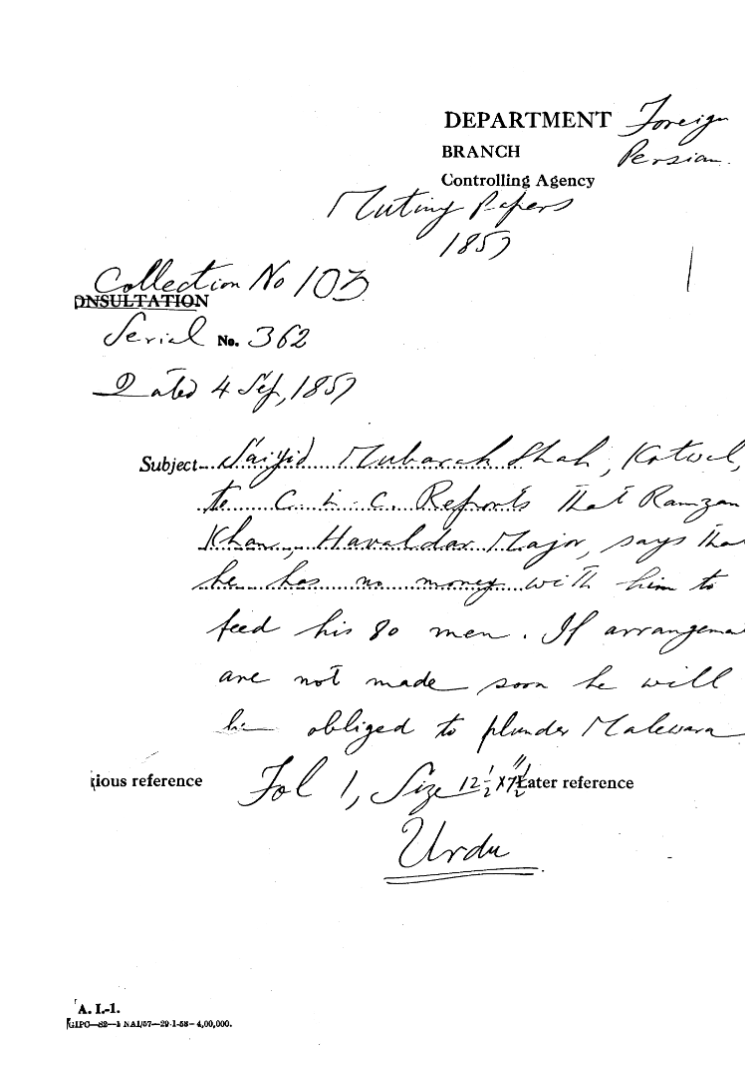 DEPARTMENT Foreign
BRANCH Persian.
Controlling Agency
Mutiny Papers
1857
Collection No 103
ONSULTATION
Serial No. 362
Dated 4 Sep, 1857
Subject Saiyid Mubarak Shah, Kotwal,
to C. in C. Reports that Ramzan
Khan, Havaldar Major, says that
he has no money with him to
feed his 80 men. If arrangemen
are not made soon he will
be obliged to plunder Malewara
ious reference Fol 1, Size 12½ x 7½" Later reference
Urdu
A. I.-1.
GIPD—S2—1 NAI/57—29-1-58—4,00,000.